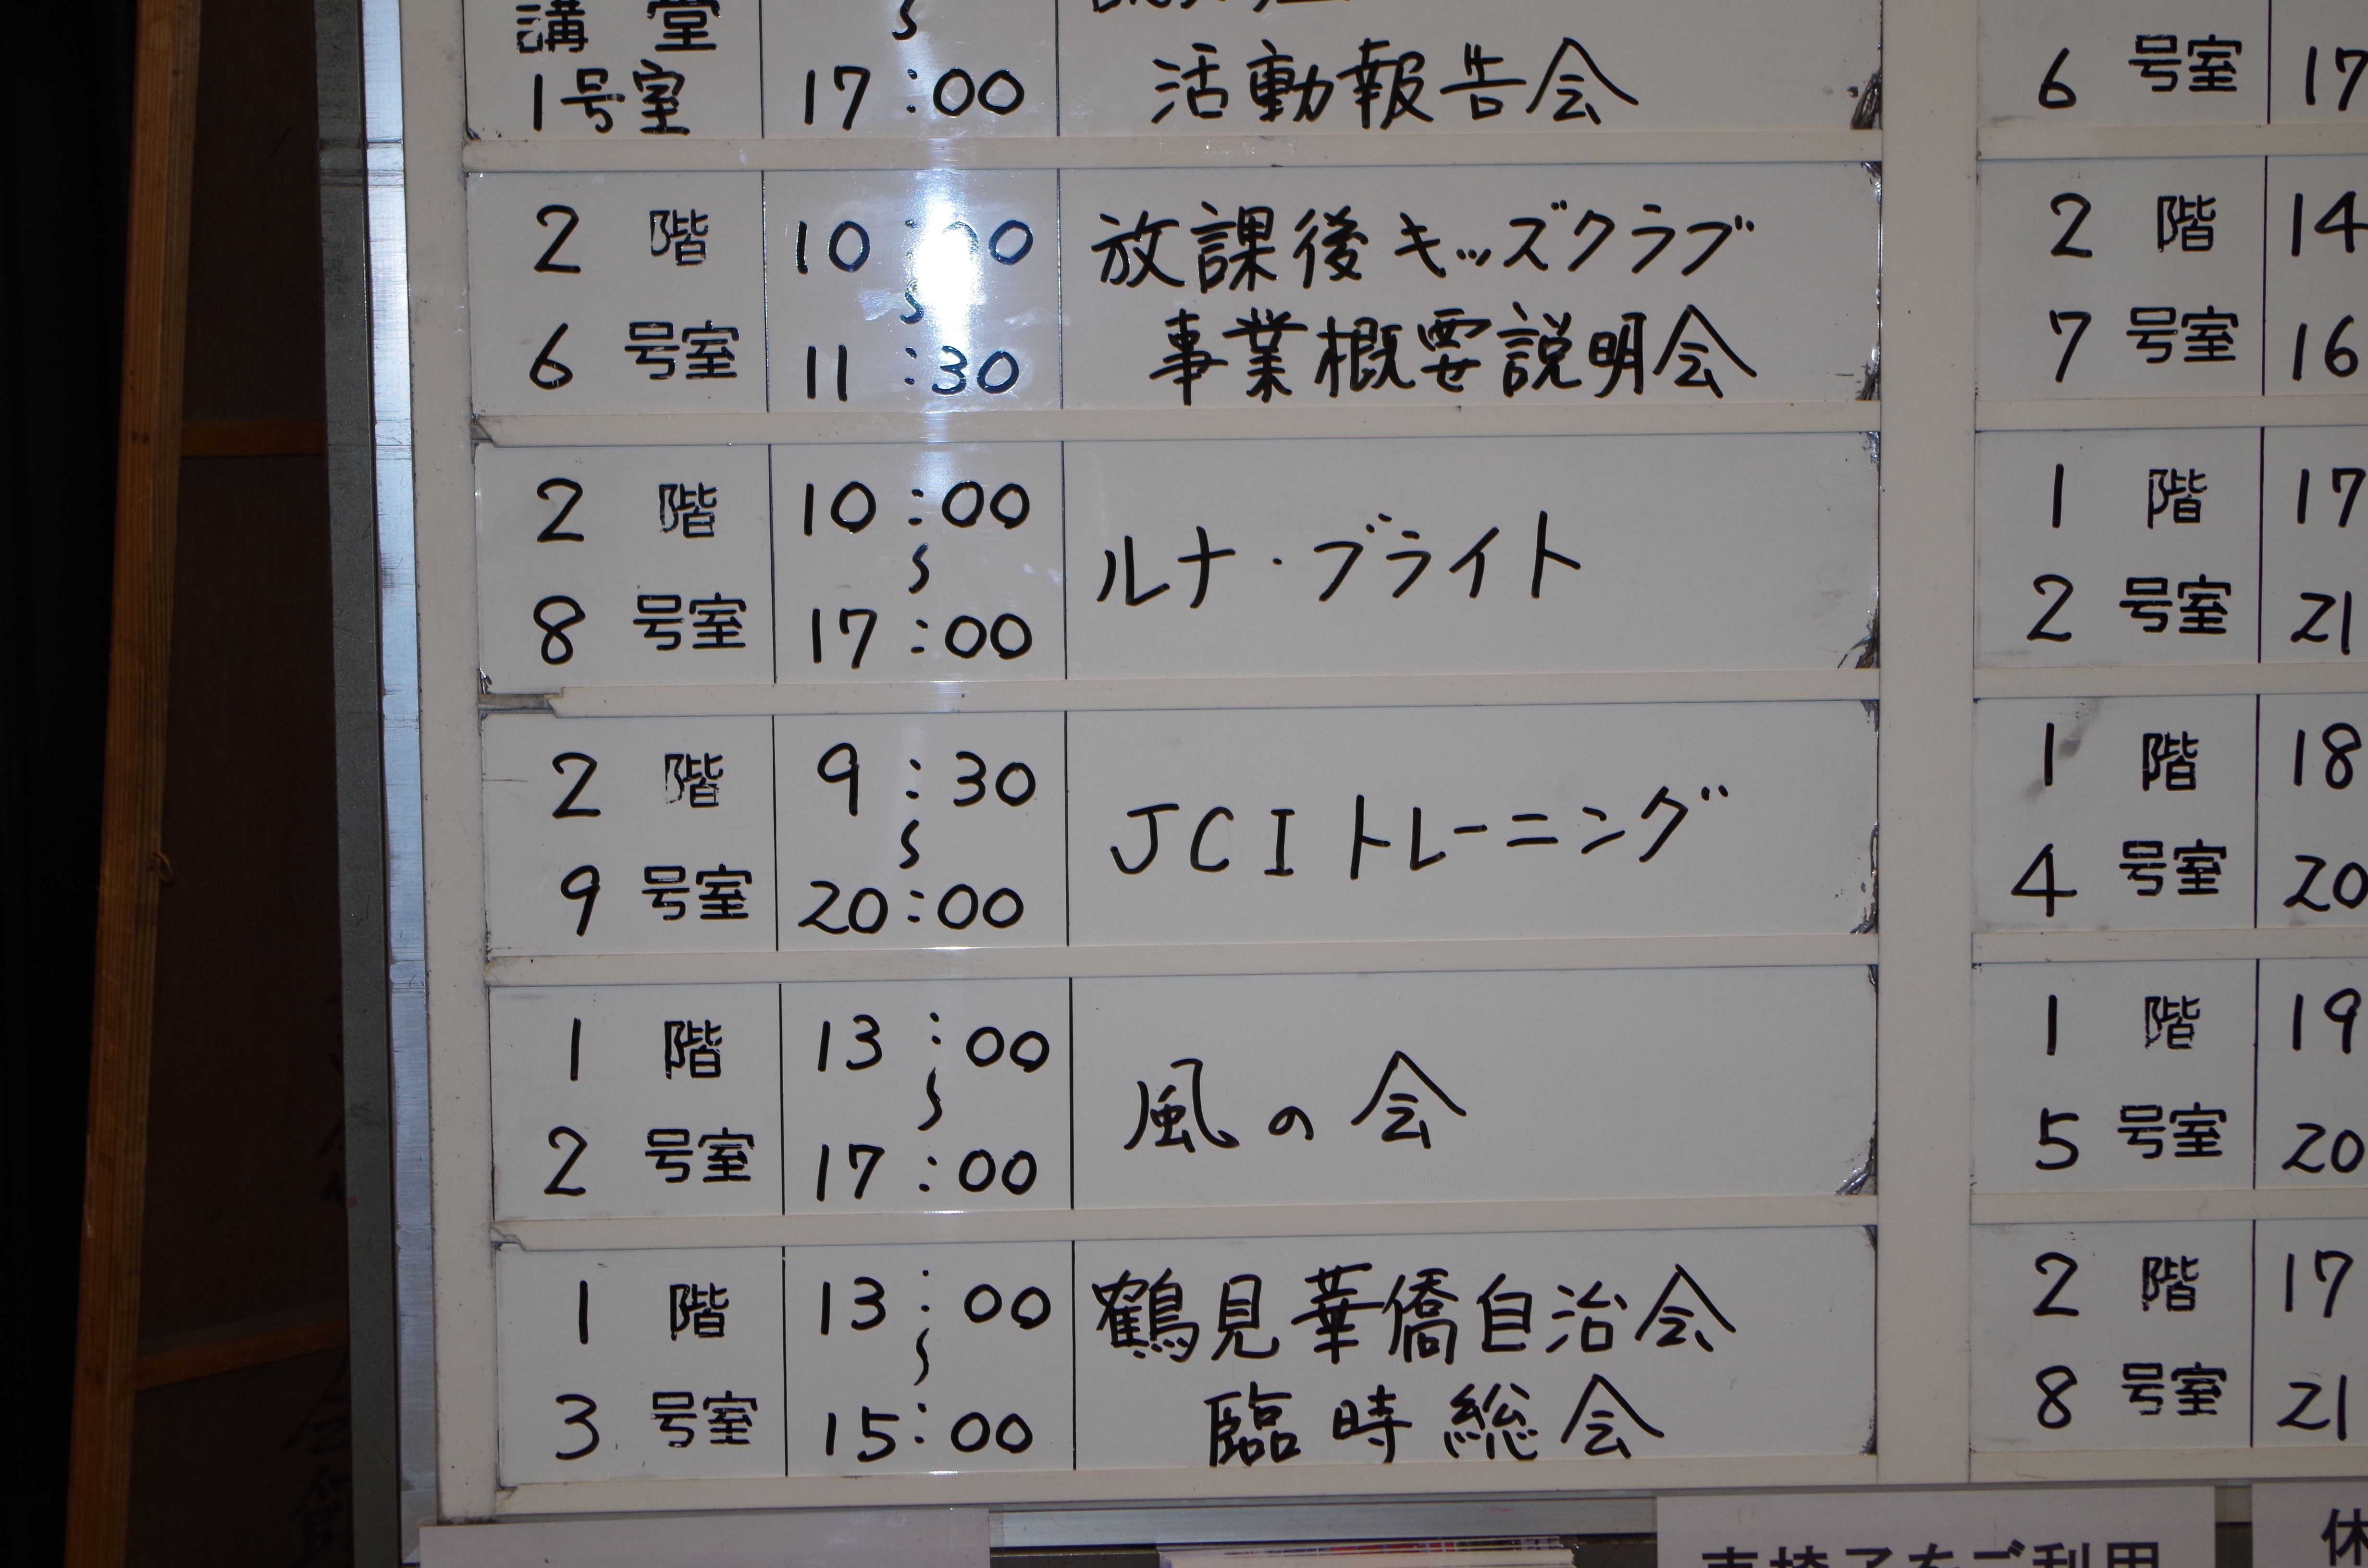 講堂
1号室
〜
17:00
活動報告会
2階
6号室
10:00
〜
11:30
放課後キッズクラブ
事業概要説明会
2階
8号室
10:00
〜
17:00
ルナ・ブライト
2階
9号室
9:30
〜
20:00
JCIトレーニング
1階
2号室
13:00
〜
17:00
風の会
1階
3号室
13:00
〜
15:00
鶴見華僑自治会
臨時総会
6号室
17
2階
7号室
14
16
1階
2号室
17
21
1階
4号室
18
20
1階
5号室
19
20
2階
8号室
17
21
車椅子をご利用
休